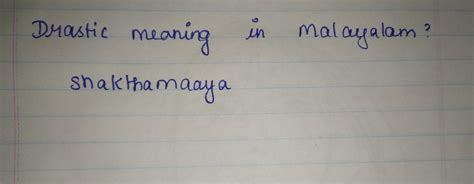 Drastic meaning in Malayalam?
shakthamaaya